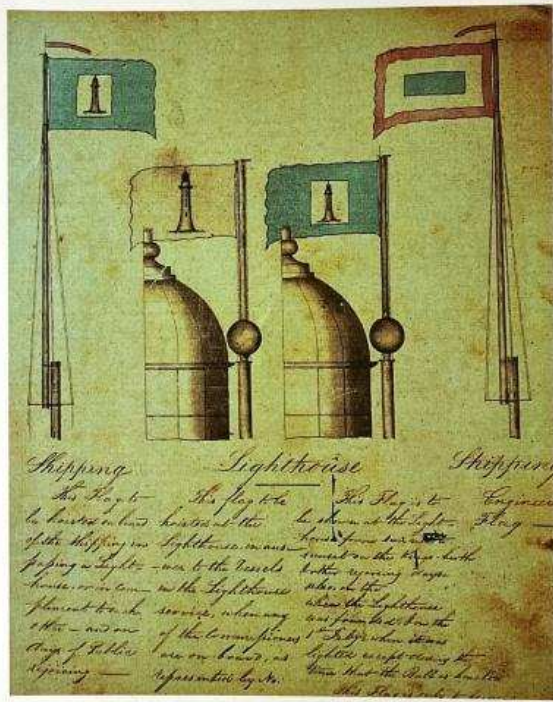 Shipping
Lighthouse
Shipping
This Flag to
be hoisted on board
of the Shipping in
passing a Light-
house, or in com-
pliment to each
other — and on
days of Public
rejoicing —
This flag to be
hoisted at the
Lighthouse in ans-
wer to the Vessels
in the Lighthouse
service, when any
of the Commissioners
are on board, as
represented by No.
This Flag is to
be shown at the Light-
house from sun
sunset on the Kings birth
& other rejoicing days
also on the
when the Lighthouse
was founded & on the
1st Feby. when it was
lighted except during the
time that the Ball is hoisted
This Flag is
Engineer
Flag —